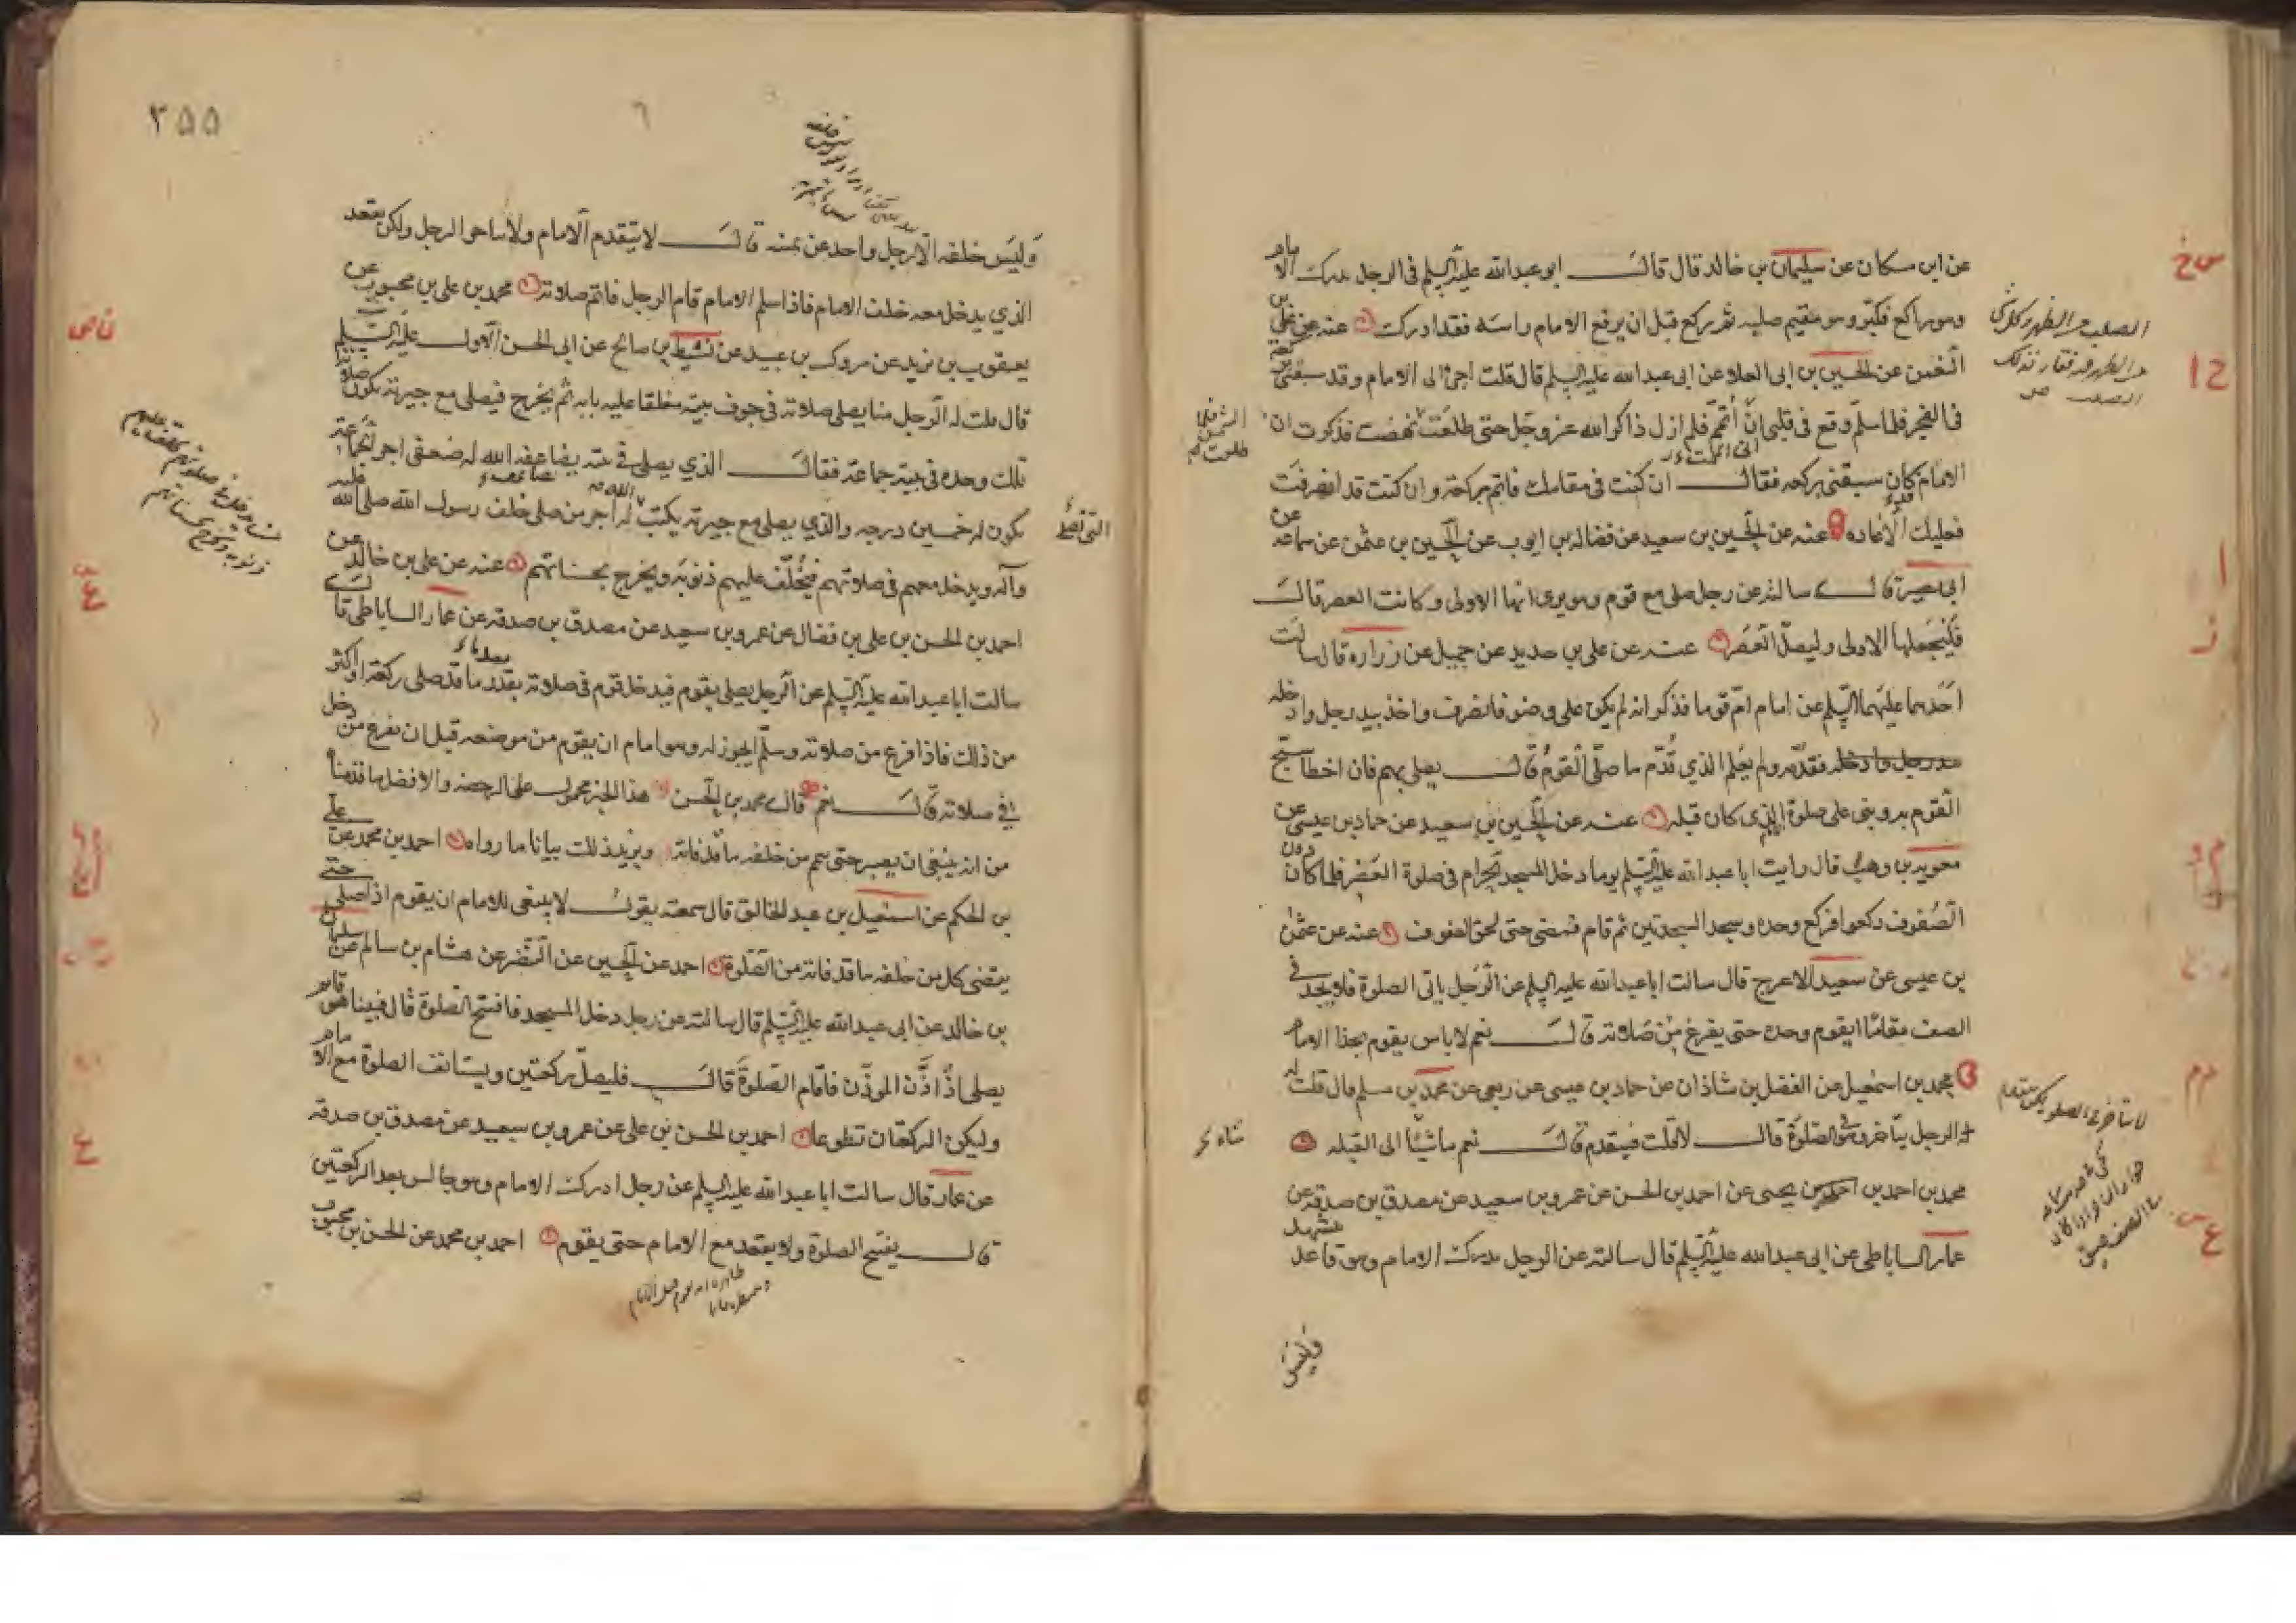 عن ابن مسكان عن سليمان بن خالد قال قال ابو عبدالله عليه السلم فى الرجل يدرك الامام
وهو راكع فكبر وهو مقيم صلبه ثم ركع قبل ان يرفع الامام راسه فقد ادرك عنه عن على بن
النعمن عن الحسين بن ابى العلا عن ابى عبدالله عليه السلم قال قلت اجئ الى الامام وقد سبقنى بركعة
فى الفجر فلما سلم وقع فى قلبى انى اتممت فلم ازل ذاكرا لله عز وجل حتى طلعت نهضت فذكرت ان
الشمس فلما طلعت
الامام كان سبقنى بركعه فقال ان كنت فى مقامك فاتم بركعة وان كنت قد انصرفت
فعليك الاعاده عنه عن الحسين بن سعيد عن فضاله بن ايوب عن الحسين بن عثمن عن سماعه عن
ابى بصير قال سالته عن رجل صلى مع قوم وهو يرى انها الاولى وكانت العصر قال
فليجعلها الاولى وليصل العصر عنه عن على بن حديد عن جميل عن زراره قال سالت
احدهما عليهما السلم عن امام ام قوما فذكر انه لم يكن على وضو فانصرف واخذ بيد رجل وادخله
فقدمه ولم يعلم الذي قدم ما صلى القوم قال يصلى بهم فان اخطا سبح
القوم به وبنى على صلوة الذى كان قبله عنه عن الحسين بن سعيد عن حماد بن عيسى عن
معويه بن وهب قال رايت ابا عبدالله عليه السلم يوما دخل المسجد الحرام فى صلوة العصر فلما كان دون
الصفوف ركعوا فركع وحده وسجد السجدتين ثم قام فمضى حتى لحق الصفوف عنه عن عثمن
بن عيسى عن سعيد الاعرج قال سالت ابا عبدالله عليه السلم عن الرجل ياتى الصلوة فلا يجد فى
الصف مقاما ايقوم وحده حتى يفرغ من صلاته قال نعم لا باس يقوم بحذا الامام
محمد بن اسمعيل عن الفضل بن شاذان عن حماد بن عيسى عن ربعى عن محمد بن مسلم قال قلت له
الرجل يتاخر وهو فى الصلوة قال لا قلت فيتقدم قال نعم ماشيا الى القبله
محمد بن احمد بن يحيى عن احمد بن الحسن عن عمرو بن سعيد عن مصدق بن صدقه عن
عمار الساباطى عن ابى عبدالله عليه السلم قال سالته عن الرجل يدرك الامام وهو قاعد يتشهد
وليس
٣٥٥
وليس خلفه الا رجل واحد عن يمينه قال لا يتقدم الامام ولا يتاخر الرجل ولكن يقعد
الذي يدخل معه خلف الامام فاذا سلم الامام قام الرجل فاتم صلاته محمد بن على بن محبوب عن
يعقوب بن يزيد عن مروك بن عبيد عن نشيط بن صالح عن ابى الحسن الاول عليه السلم
قال قلت له الرجل منا يصلى صلاته فى جوف بيته مغلقا عليه بابه ثم يخرج فيصلى مع جيرته تكون صلاته
تلك وحده فى بيته جماعة فقال الذي يصلى فى بيته يضاعفه الله له ضعفى اجر الجماعة
يكون له خمسين درجه والذي يصلى مع جيرته يكتب له اجر من صلى خلف رسول الله صلى الله عليه
وآله ويدخل معهم فى صلاتهم فيخلف عليهم ذنوبه ويخرج بحسناتهم عنه عن على بن خالد عن
احمد بن الحسن بن على بن فضال عن عمرو بن سعيد عن مصدق بن صدقه عن عمار الساباطى قال
سالت ابا عبدالله عليه السلم عن الرجل يصلى بقوم فيدخل قوم فى صلاته بقدر ما قد صلى ركعة او اكثر
من ذلك فاذا فرغ من صلاته وسلم ايجوز له وهو امام ان يقوم من موضعه قبل ان يفرغ من دخل
فى صلاته قال نعم قال محمد بن الحسن هذا الخبر محمول على الرخصه والافضل ما قدمناه
من انه ينبغى ان يصبر حتى يتم من خلفه ما قد فاته ويزيد ذلك بيانا ما رواه احمد بن محمد عن على
بن الحكم عن اسمعيل بن عبد الخالق قال سمعته يقول لا ينبغى للامام ان يقوم اذا صلى حتى
يقضى كل من خلفه ما قد فاته من الصلوة احمد عن الحسين عن النضر عن هشام بن سالم عن سليمان
بن خالد عن ابى عبدالله عليه السلم قال سالته عن رجل دخل المسجد فافتتح الصلوة قال فبينا هو قايم
يصلى اذ اذن الموذن فاقام الصلوة قال فليصل ركعتين ويستانف الصلوة مع الامام
وليكن الركعتان تطوعا احمد بن الحسن بن على عن عمرو بن سعيد عن مصدق بن صدقه
عن عمار قال سالت ابا عبدالله عليه السلم عن رجل ادرك الامام وهو جالس بعد الركعتين
قال يفتتح الصلوة ولا يقعد مع الامام حتى يقوم احمد بن محمد عن الحسن بن محبوب